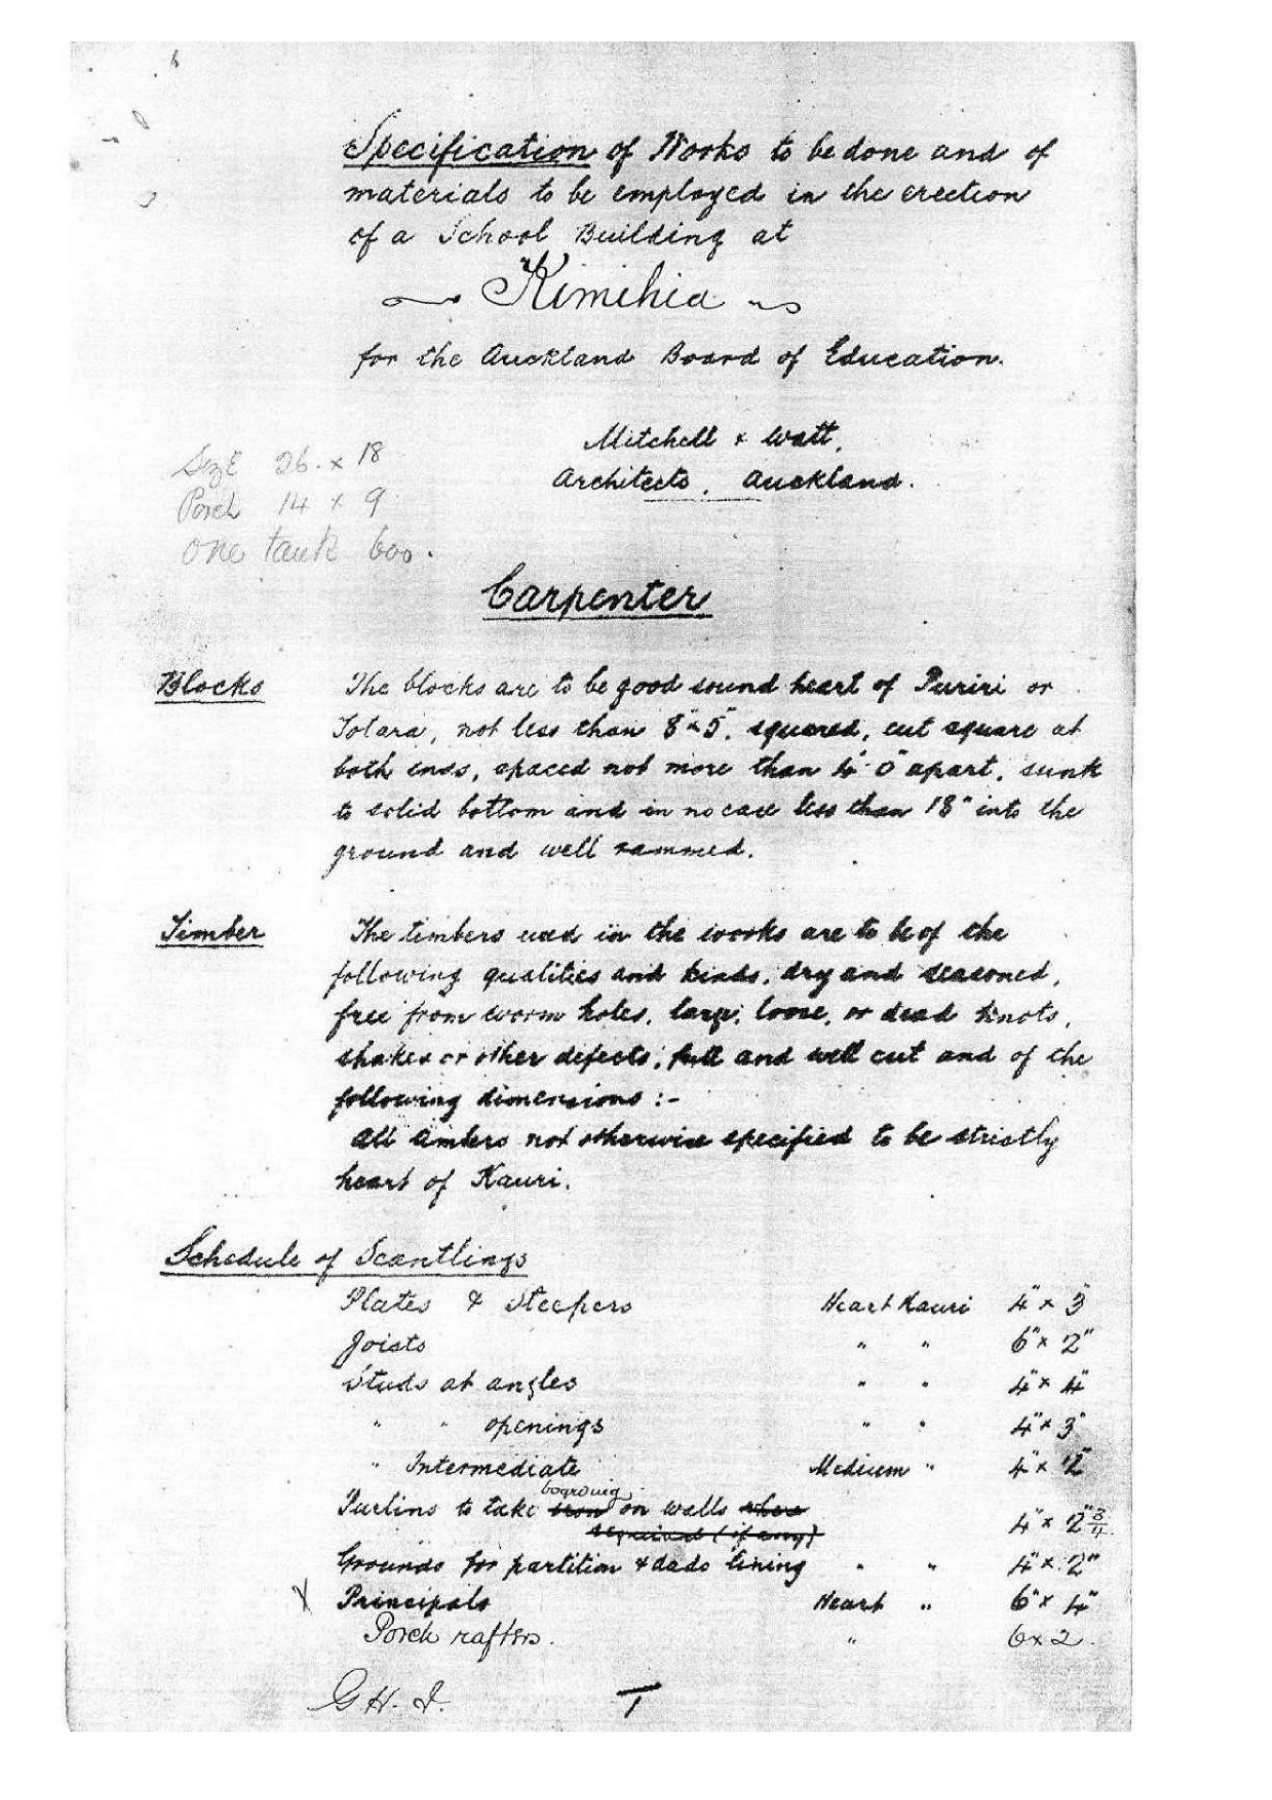 Specification of Works to be done and of
materials to be employed in the erection
of a School Building at
"Kimihia
for the Auckland Board of Education.
Mitchell & Watt,
Architects, Auckland.
Size 26 x 18
Porch 14 x 9
One tank 600.
Carpenter
Blocks The blocks are to be good sound heart of Puriri or
Totara, not less than 8" x 5", squared, cut square at
both ends, spaced not more than 4' 0" apart, sunk
to solid bottom and in no case less than 18" into the
ground and well rammed.
Timber The timbers used in the works are to be of the
following qualities and kinds, dry and seasoned,
free from worm holes, large, loose, or dead knots,
shakes or other defects, full and well cut and of the
following dimensions :-
All timbers not otherwise specified to be strictly
heart of Kauri.
Schedule of Scantlings
Plates & Sleepers Heart Kauri 4" x 3"
Joists " " 6" x 2"
Studs at angles " " 4" x 4"
" " openings " " 4" x 3"
" Intermediate Medium " 4" x 2"
boarding
Purlins to take iron on walls where
required (if any) 4" x 2" 3/4
Grounds for partition & dado lining " " 4" x 2"
X Principals Heart " 6" x 4"
Porch rafters. " 6 x 2.
G H. I.